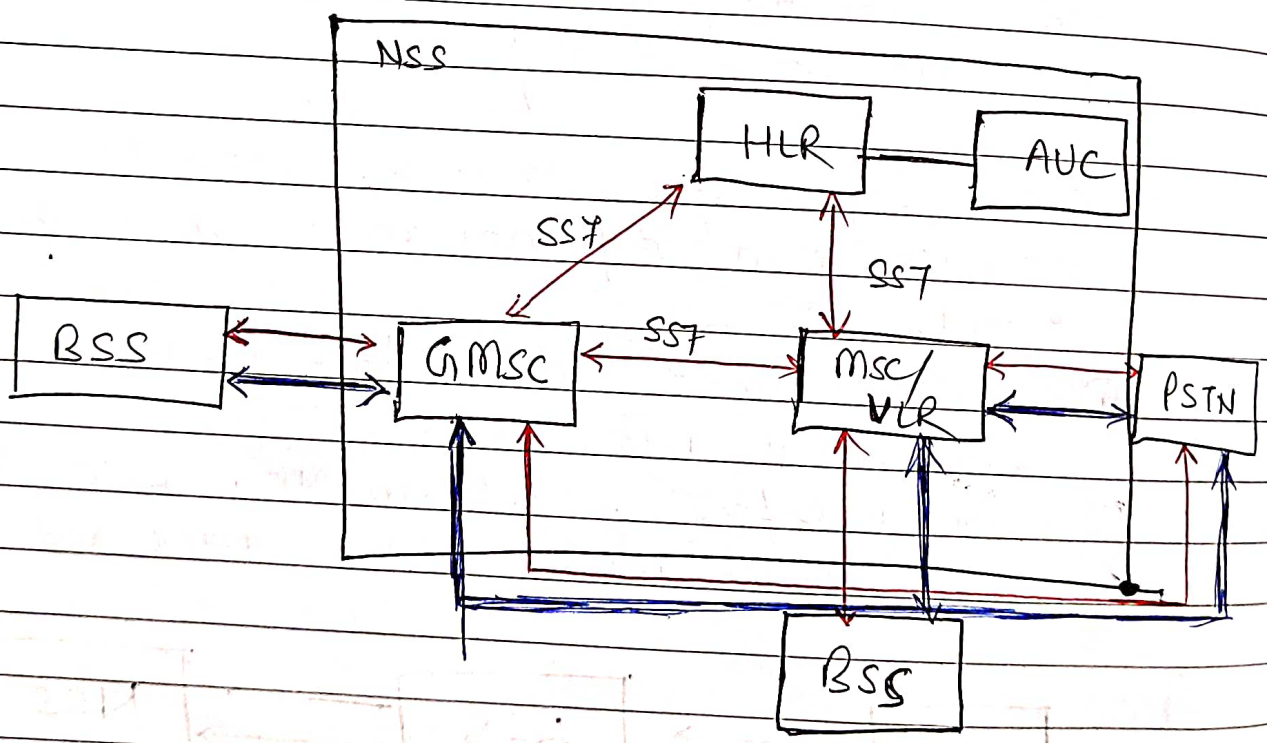 NSS
HLR
AUC
SS7
SS7
BSS
GMSC
SS7
MSC/
VLR
PSTN
BSS